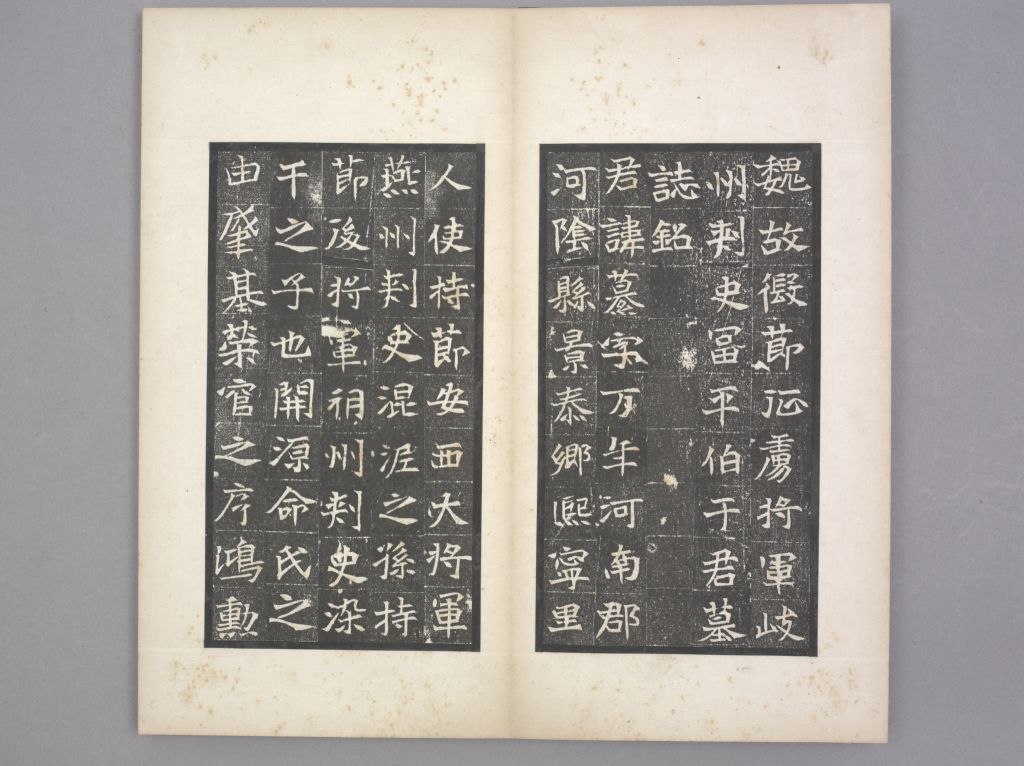 魏故假節征虜將軍岐
州刺史富平伯于君墓
誌銘
君諱纂字万年河南郡
河陰縣景泰鄉熙寧里
人使持節安西大將軍
燕州刺史混泥之孫持
節後將軍朔州刺史染
干之子也開源命氏之
由肇基榮宦之序鴻勳